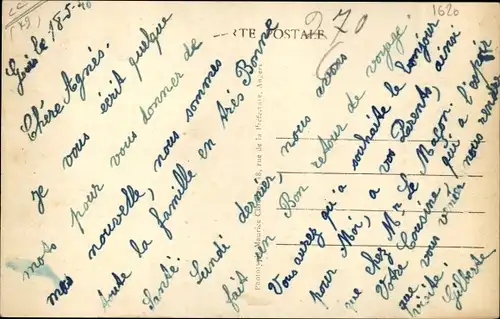 CC
(79)
1620
270
CARTE POSTALE
le 18-5-40
Chère Agnès.
Je vous écrit quelque
mots pour vous donner de
nos nouvelle, nous sommes
toute la famille en très Bonne
Santé. Lundi dernier, nous avons
fait un Bon retour de voyage.
Vous aurez qu'a souhaité le bonjour
pour Moi, a vos Parents, ainsi
que chez Mr Le Maçon.
Votre Cousine qui a l'espoir
que vous venér nous rendre
visite.
Gilberte
8, rue de la Préfecture, Angers